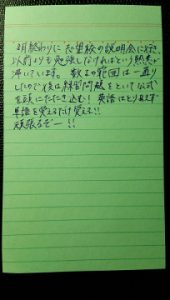 月終わりに志望校の説明会に行き、
以前よりも勉強しなければという熱意が
沸いています。数IIの範囲は一通り
したので後は練習問題をといて公式
を頭にたたき込む！英語はとりあえず
単語を覚えるだけ覚える!!
頑張るぞー!!